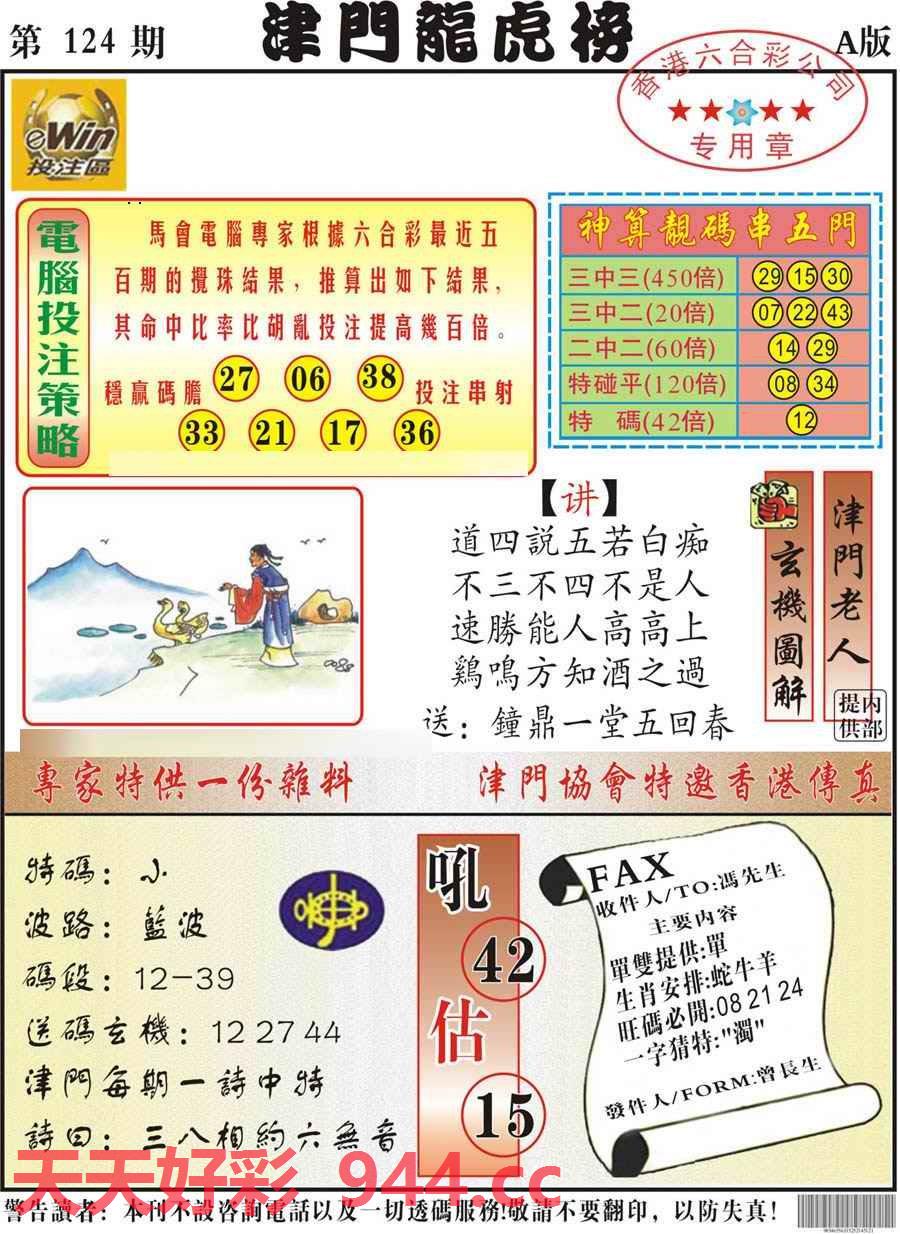 第 124 期
津門龍虎榜
A版
香港六合彩公司
专用章
eWin
投注區
電腦投注策略
馬會電腦專家根據六合彩最近五
百期的攪珠結果，推算出如下結果，
其命中比率比胡亂投注提高幾百倍。
穩贏碼膽 27 06 38 投注串射
33 21 17 36
神算靚碼串五門
三中三(450倍) 29 15 30
三中二(20倍) 07 22 43
二中二(60倍) 14 29
特碰平(120倍) 08 34
特 碼(42倍) 12
【讲】
道四説五若白痴
不三不四不是人
速勝能人高高上
鷄鳴方知酒之過
送：鐘鼎一堂五回春
玄機圖解
津門老人
内部提供
專家特供一份雜料
津門協會特邀香港傳真
特碼：小
波路：藍波
碼段：12-39
送碼玄機：12 27 44
津門每期一詩中特
詩曰：三八相約六無音
吼
42
估
15
FAX
收件人/TO:馮先生
主要内容
單雙提供:單
生肖安排:蛇牛羊
旺碼必開:08 21 24
一字猜特:"濁"
發件人/FORM:曾長生
天天好彩 944.cc
警告讀者：本刊不設咨詢電話以及一切透碼服務!敬請不要翻印，以防失真!